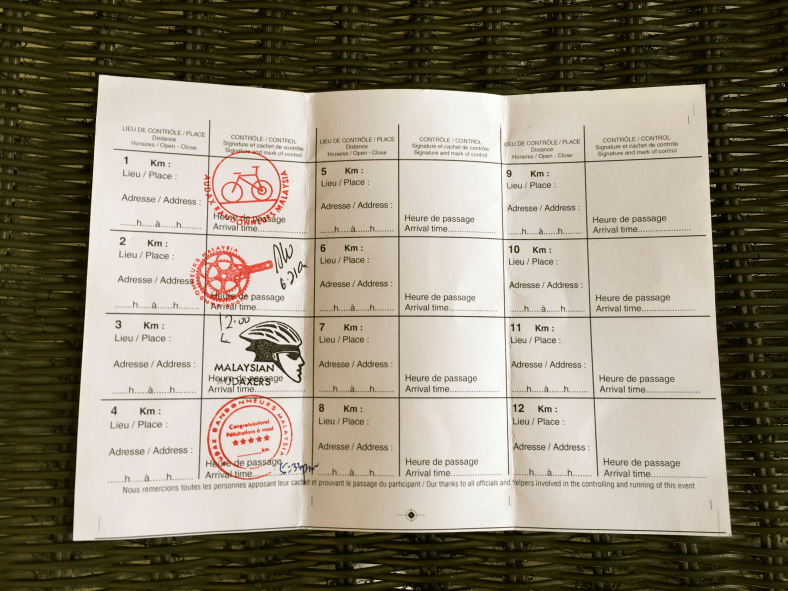 LIEU DE CONTRÔLE / PLACE
Distance
Horaires / Open - Close
CONTRÔLE / CONTROL
Signature et cachet de contrôle
Signature and mark of control
1 Km :
Lieu / Place :
Adresse / Address :
......h.....à.....h.......
AUDAX RANDONNEURS MALAYSIA
Heure de passage
Arrival time
2 Km :
Lieu / Place :
Adresse / Address
......h.....à.....h.......
RANDONNEURS MALAYSIA
Heure de passage
Arrival time
3 Km :
Lieu / Place :
Adresse / Address :
......h.....à.....h.......
12:00
MALAYSIAN
AUDAXERS
Heure de passage
Arrival time
4 Km :
Lieu / Place :
Adresse / Address :
......h.....à.....h.......
AUDAX RANDONNEURS MALAYSIA
Congratulations!
Félicitations à vous!
km
Heure de passage
Arrival time
LIEU DE CONTRÔLE / PLACE
Distance
Horaires / Open - Close
CONTRÔLE / CONTROL
Signature et cachet de contrôle
Signature and mark of control
5 Km :
Lieu / Place :
Adresse / Address :
......h.....à.....h.......
Heure de passage
Arrival time
6 Km :
Lieu / Place :
Adresse / Address :
......h.....à.....h.......
Heure de passage
Arrival time
7 Km :
Lieu / Place :
Adresse / Address :
......h.....à.....h.......
Heure de passage
Arrival time
8 Km :
Lieu / Place :
Adresse / Address :
......h.....à.....h.......
Heure de passage
Arrival time
LIEU DE CONTRÔLE / PLACE
Distance
Horaires / Open - Close
CONTRÔLE / CONTROL
Signature et cachet de contrôle
Signature and mark of control
9 Km :
Lieu / Place :
Adresse / Address :
......h.....à.....h.......
Heure de passage
Arrival time
10 Km :
Lieu / Place :
Adresse / Address :
......h.....à.....h.......
Heure de passage
Arrival time
11 Km :
Lieu / Place :
Adresse / Address :
......h.....à.....h.......
Heure de passage
Arrival time
12 Km :
Lieu / Place :
Adresse / Address :
......h.....à.....h.......
Heure de passage
Arrival time
Nous remercions toutes les personnes apposant leur cachet et prouvant le passage du participant / Our thanks to all officials and helpers involved in the controlling and running of this event